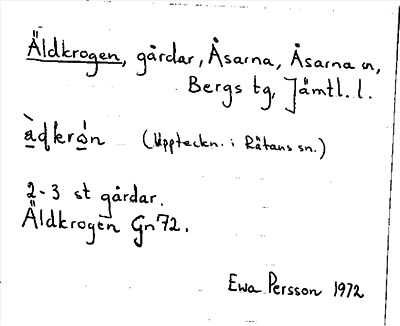 Äldkrogen, gårdar, Åsarna, Åsarna sn,
Bergs tg, Jämtl. l.
àdkrón (Uppteckn. i Rätans sn.)
2-3 st gårdar.
Äldkrogen Gn 72.
Ewa Persson 1972